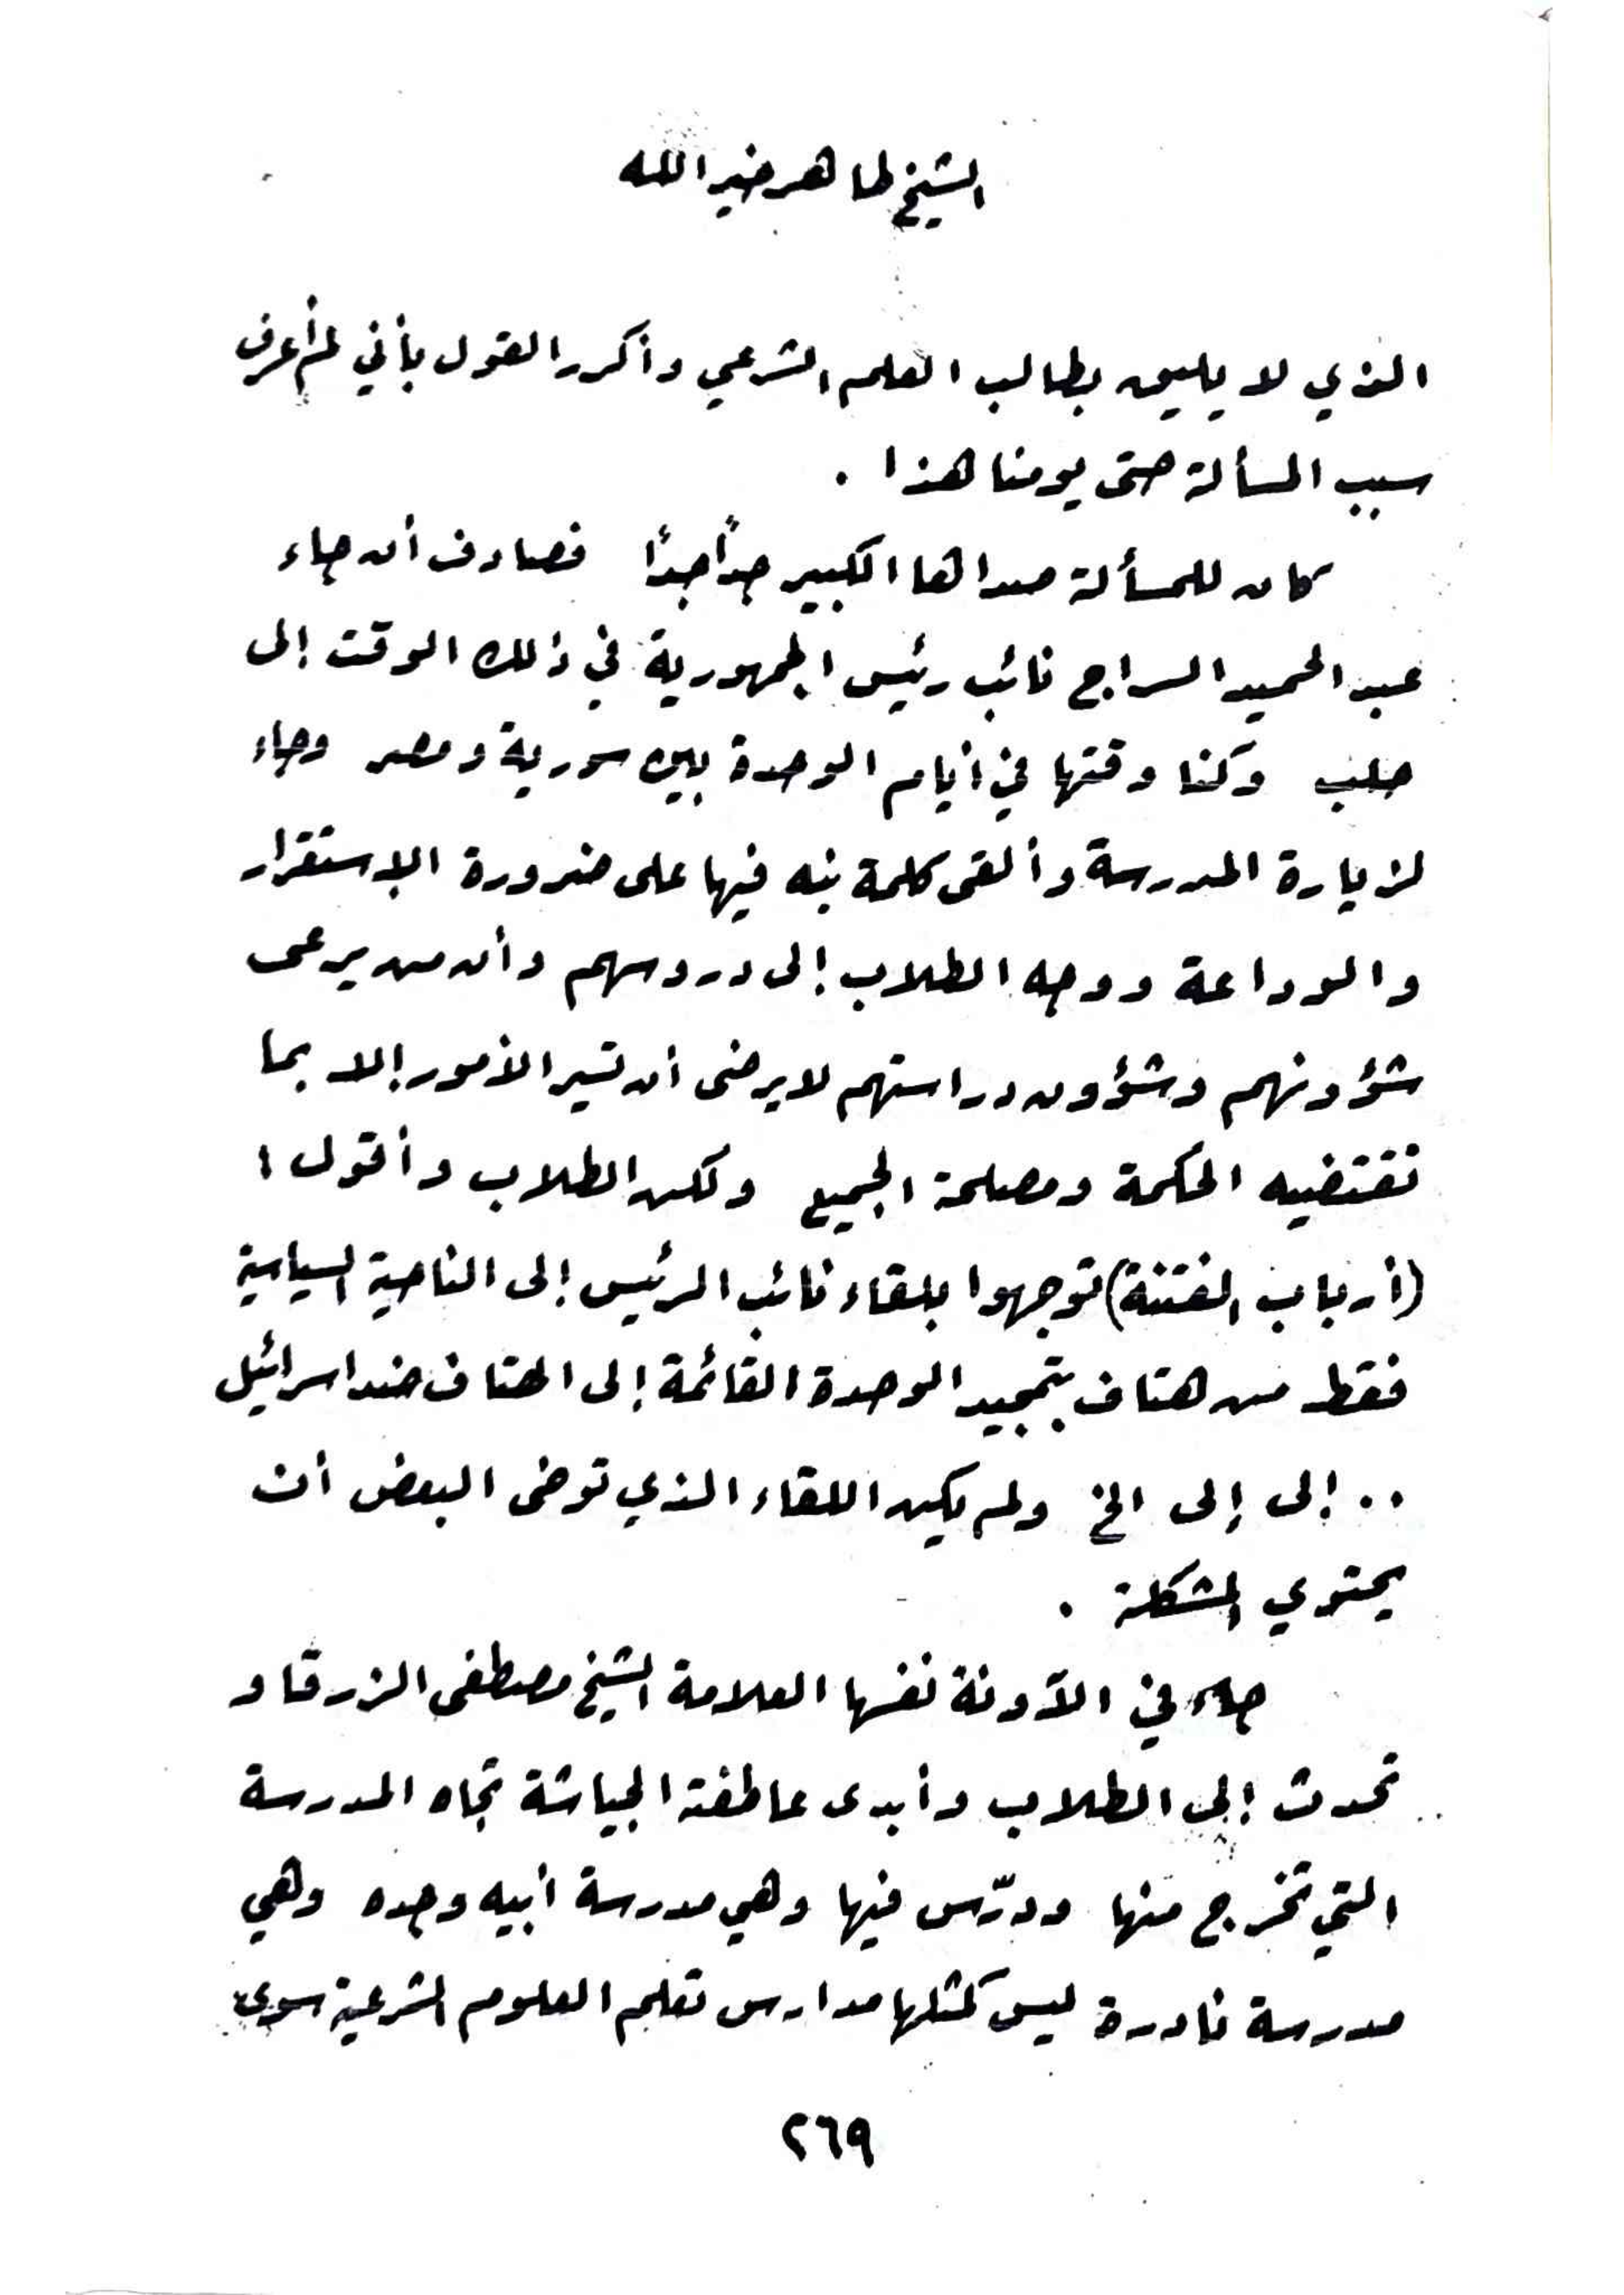 الشيخ طاهر خير الله
الذي لا يليق بطالب العلم الشرعي وأكرر القول بأني لم أعرف
سبب المسألة حتى يومنا هذا .
كان للمسألة صداها الكبير جداً جداً فصادف أن جاء
عبد الحميد السراج نائب رئيس الجمهورية في ذلك الوقت إلى
حلب وكنا وقتها في أيام الوحدة بين سورية ومصر وجاء
لزيارة المدرسة وألقى كلمة نبه فيها على ضرورة الإستقرار
والوداعة ووجه الطلاب إلى دروسهم وأن من يرعى
شؤونهم وشؤون دراستهم لا يرضى أن تسير الأمور إلا بما
تقتضيه الحكمة ومصلحة الجميع ولكن الطلاب وأقول :
(أرباب الفتنة) توجهوا بلقاء نائب الرئيس إلى الناحية السياسية
فقط من هتاف بتمجيد الوحدة القائمة إلى الهتاف ضد اسرائيل
.. إلى إلى الخ ولم يكن اللقاء الذي توخى البعض أن
يحتوي المشكلة .
جاء في الآونة نفسها العلامة الشيخ مصطفى الزرقا و
تحدث إلى الطلاب وأبدى عاطفته الجياشة تجاه المدرسة
التي تخرج منها ودرّس فيها وهي مدرسة أبيه وجده وهي
مدرسة نادرة ليس كمثلها مدارس تعلم العلوم الشرعية سوى
٢٦٩